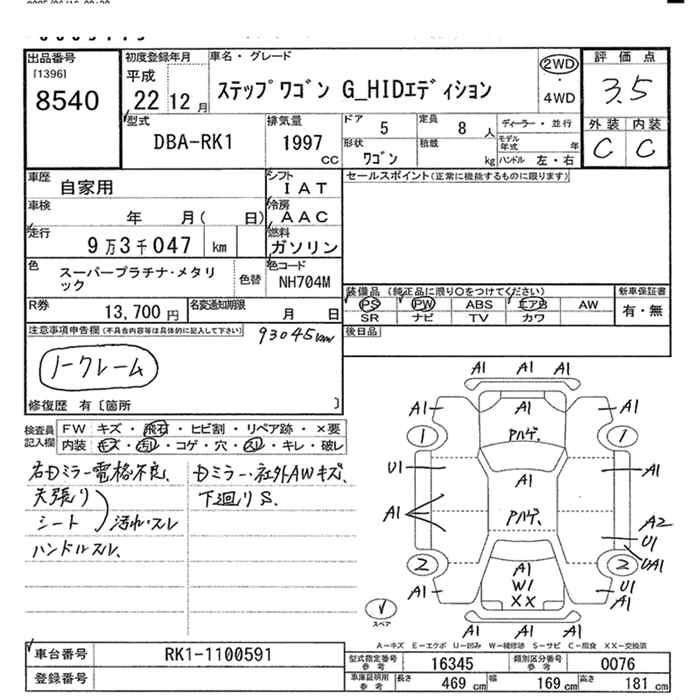 出品番号
[1396]
8540
初度登録年月
平成
22 12 月
車名・グレード
ステップワゴン G_HIDエディション
2WD
・
4WD
評価点
3.5
外装 内装
C C
型式
DBA-RK1
排気量
1997
CC
ドア 5
定員 8 人
ディーラー・並行
モデル年式 年
形状 ワゴン
積載 kg
ハンドル 左・右
車歴
自家用
シフト
IAT
車検
年 月( 日)
冷房
AAC
走行
9万3千047 km
燃料
ガソリン
色
スーパープラチナ・メタリック
色替
色コード
NH704M
R券
13,700 円
名変通知期限
月 日
セールスポイント(正常に機能するものに限ります)
装備品(純正品に限り○をつけてください)
PS PW ABS エアB AW
SR ナビ TV カワ
新車保証書
有・無
後日品
注意事項申告欄(不具合内容等は具体的に記入して下さい)
93045km
ノークレーム
修復歴 有〔箇所 〕
検査員記入欄
FW キズ・飛石・ヒビ割・リペア跡・×要
内装 キズ・汚れ・コゲ・穴・スレ・キレ・破レ
右Dミラー電格不良、
天張り
シート
汚れ・スレ
ハンドルスレ、
Dミラー・社外AWキズ、
下廻りS.
A1 A1 A1
A1 A1 A1
1 アハゲ、 1
U1 A1 A1
A1 アハゲ、 A2
U1
UA1
2 A1 2
A1 W1 U1
XX A1
A1 A1 A1
スペア
A-キズ E-エクボ U-凹み W-補修跡 S-サビ C-腐食 XX-交換済
車台番号
RK1-1100591
登録番号
型式指定番号
参考
16345
類別区分番号
参考
0076
車庫証明用
参考
長さ 469 cm
幅 169 cm
高さ 181 cm